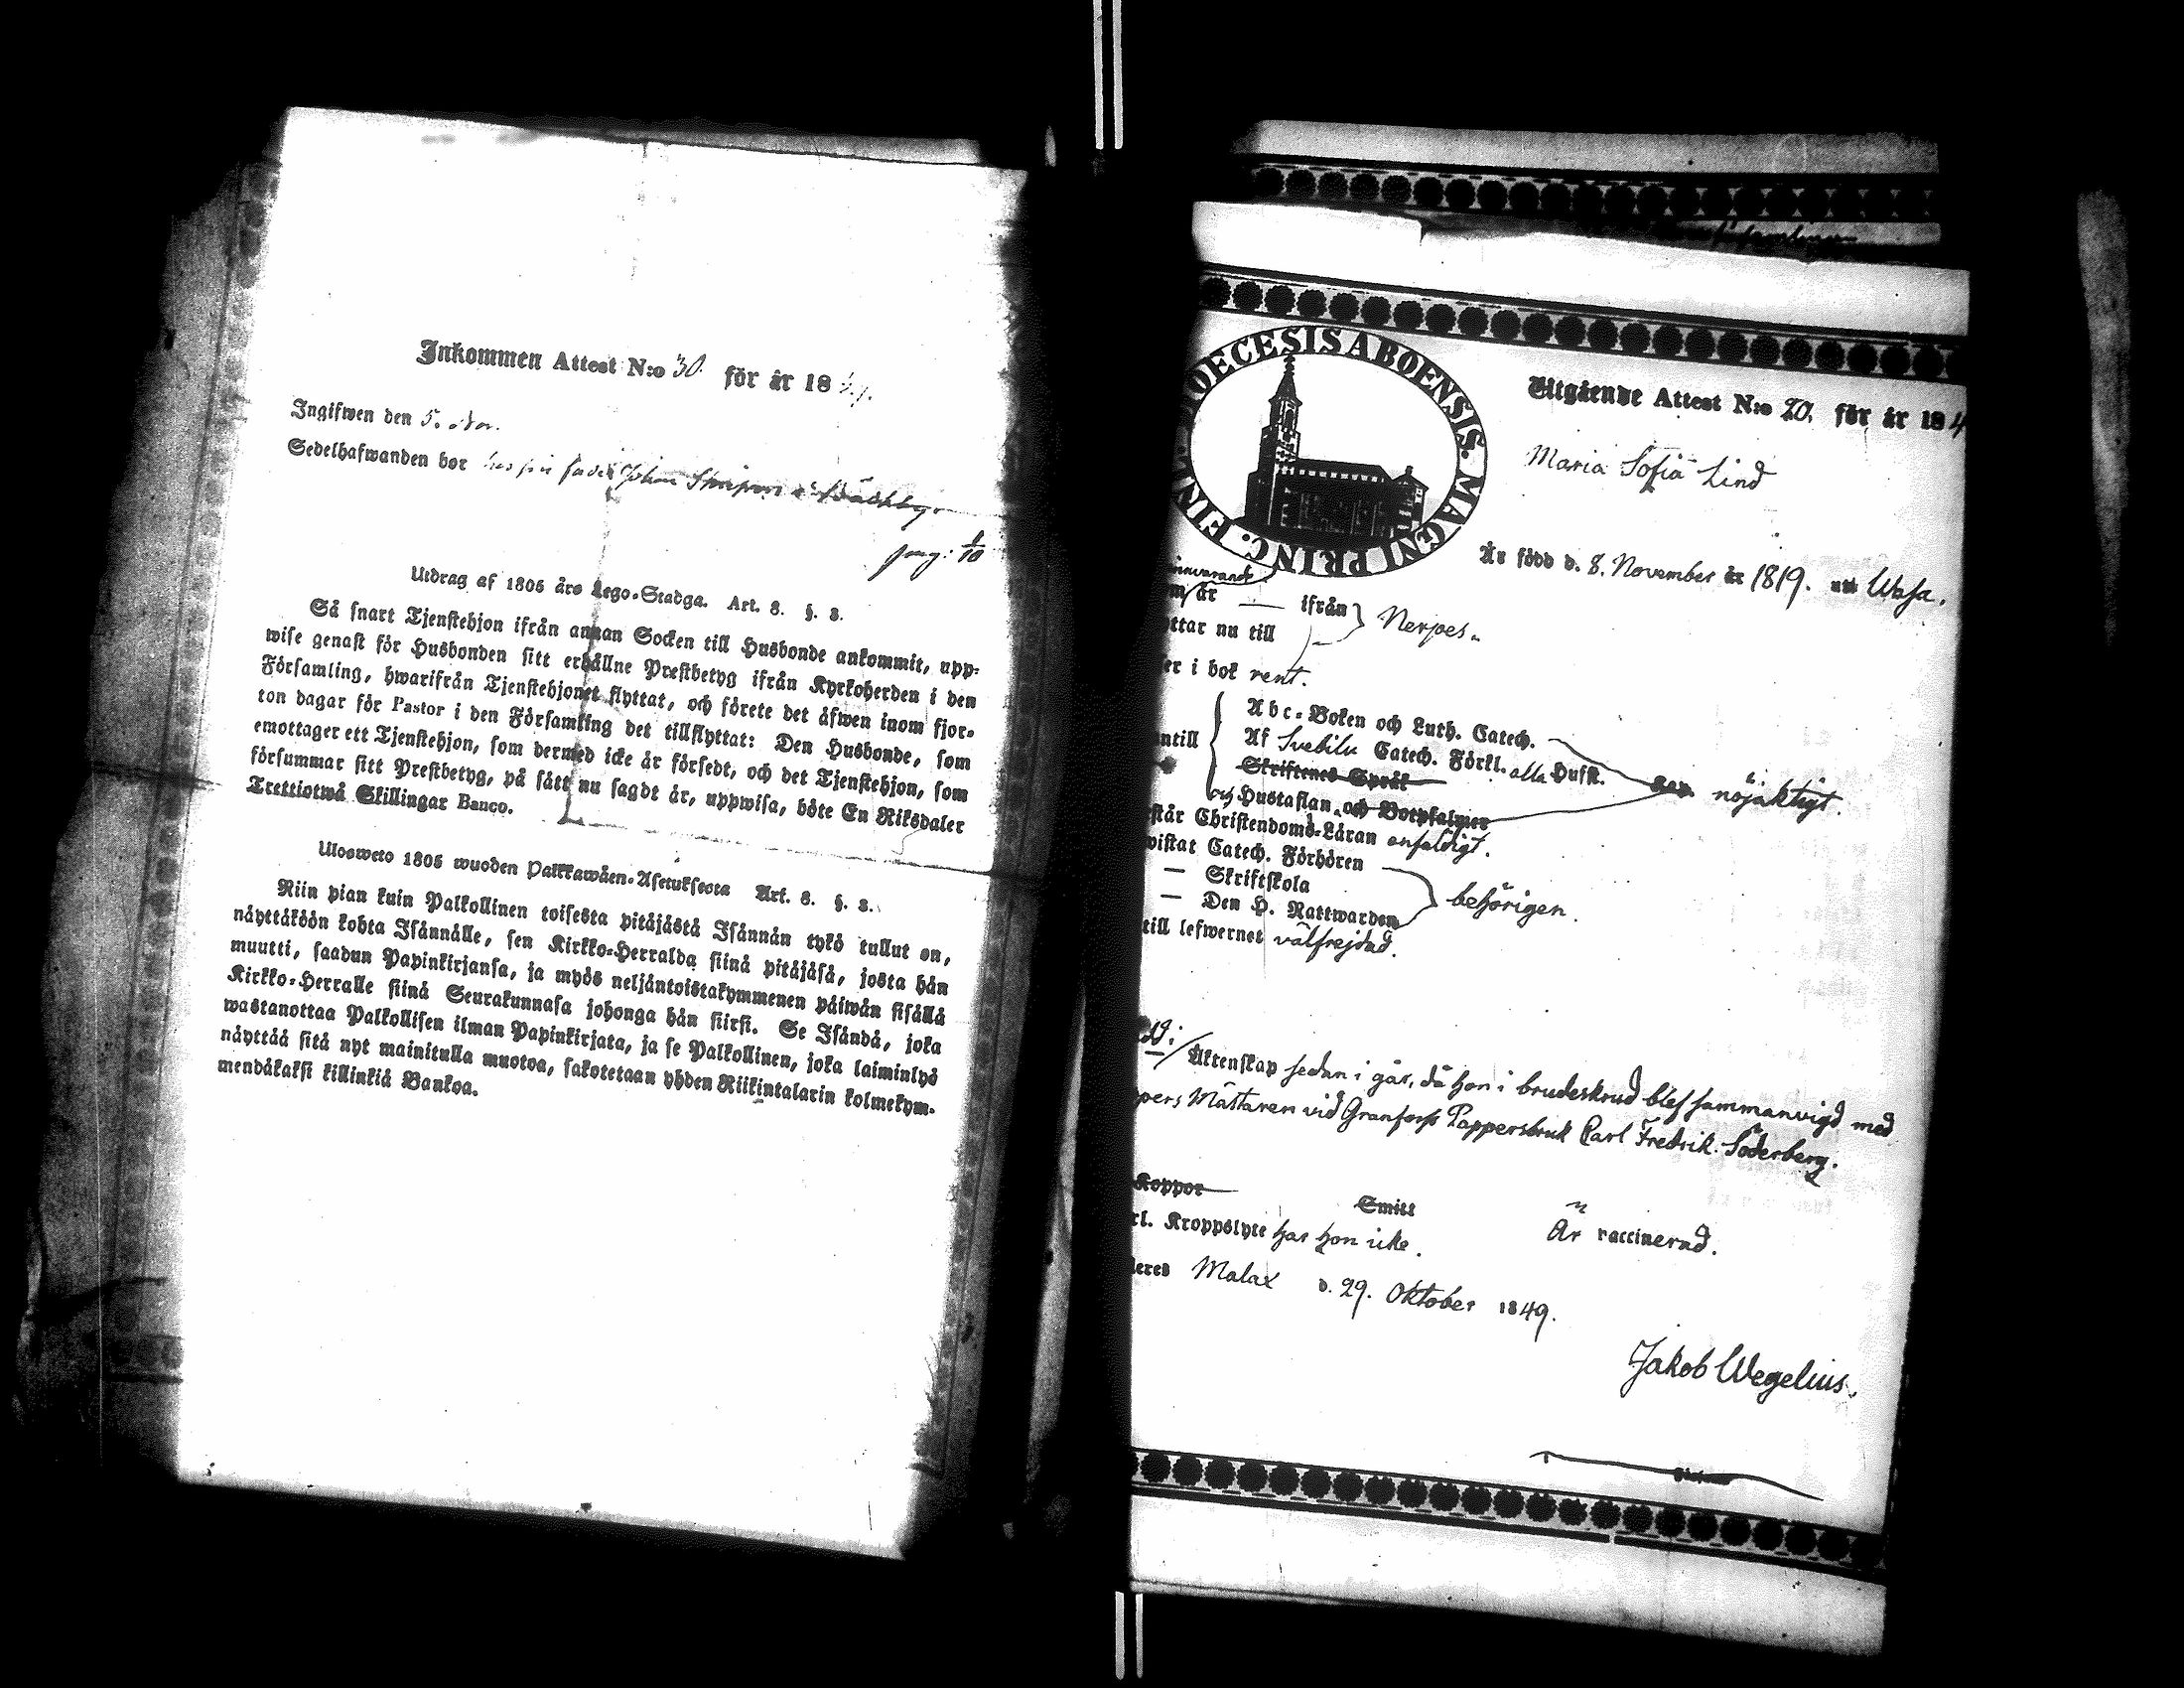 Inkommen Attest N:o 30. för år 18
Ingifwen den 5. Nov.
Sedelhafwanden bor hos sin fader Johan
Utdrag af 1805 års Lego-Stadga. Art. 8. §. 3.
Så snart Tjenstehjon ifrån annan Socken till Husbonde ankommit, upp-
wise genast för Husbonden sitt erhållne Prestbetyg ifrån Kyrkoherden i den
Församling, hwarifrån Tjenstehjonet flyttat, och förete det äfwen inom fjor-
ton dagar för Pastor i den Församling det tillflyttat: Den Husbonde, som
emottager ett Tjenstehjon, som dermed icke är försedt, och det Tjenstehjon, som
försummar sitt Prestbetyg, på sätt nu sagdt är, uppwisa, böte En Riksdaler
Trettiotwå Skillingar Banco.
Ulosweto 1805 wuoden Palkkawäen-Asetuksesta Art. 8. §. 3.
Niin pian kuin Palkollinen toisesta pitäjästä Isännän tykö tullut on,
näyttäköön kohta Isännälle, sen Kirkko-Herralda siinä pitäjäsä, josta hän
muutti, saadun Papinkirjansa, ja myös neljäntoistakymmenen päiwän sisällä
Kirkko-Herralle siinä Seurakunnasa johonga hän siirsi. Se Isändä, joka
wastanottaa Palkollisen ilman Papinkirjata, ja se Palkollinen, joka laiminlyö
näyttää sitä nyt mainitulla muotoa, sakotetaan yhden Riikintalarin kolmekym-
mendäkaksi killinkiä Bankoa.
DIOECESIS ABOENSIS. MAGNI PRINC. FINL.
Utgående Attest N:o 20. för år 184
Maria Sofia Lind
Är född d. 8. November år 1819. uti Wasa.
innevarande
m år — ifrån
ttar nu till
Nerpes.
er i bok rent.
Abc-Boken och Luth. Catech.
ntill Af Svebilii Catech. Förkl. alla Hufst.
Skriftenes Språk
nöjaktigt.
och Hustaflan och Botpsalmer
står Christendoms-Läran enfaldigt.
wistat Catech. Förhören
— Skriftskola
— Den H. Nattwarden
behörigen.
till lefwernet välfrejdad.
Äktenskap sedan i går, då hon i brudeskrud blef sammanvigd med
pers Mästaren vid Granfors Pappersbruk Carl Fredrik Söderberg.
Koppor Smitt
Är vaccinerad.
rl. Kroppslyte har hon icke.
eres Malax d. 29. Oktober 1849.
Jakob Wegelius.